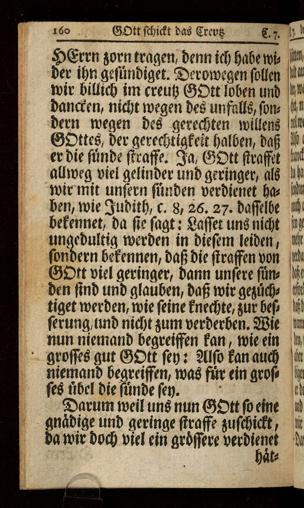 160 GOtt schickt das Creutz C. 7.
HErrn zorn tragen, denn ich habe wi-
der ihn gesündiget. Derowegen sollen
wir billich im creutz GOtt loben und
dancken, nicht wegen des unfalls, son-
dern wegen des gerechten willens
GOttes, der gerechtigkeit halben, daß
er die sünde straffe. Ja, GOtt straffet
allweg viel gelinder und geringer, als
wir mit unsern sünden verdienet ha-
ben, wie Judith, c. 8, 26. 27. dasselbe
bekennet, da sie sagt: Lasset uns nicht
ungedultig werden in diesem leiden,
sondern bekennen, daß die straffen von
GOtt viel geringer, dann unsere sün-
den sind und glauben, daß wir gezüch-
tiget werden, wie seine knechte, zur bes-
serung, und nicht zum verderben. Wie
nun niemand begreiffen kan, wie ein
grosses gut GOtt sey: Also kan auch
niemand begreiffen, was für ein gros-
ses übel die sünde sey.
Darum weil uns nun GOtt so eine
gnädige und geringe straffe zuschickt,
da wir doch viel ein grössere verdienet
hät-